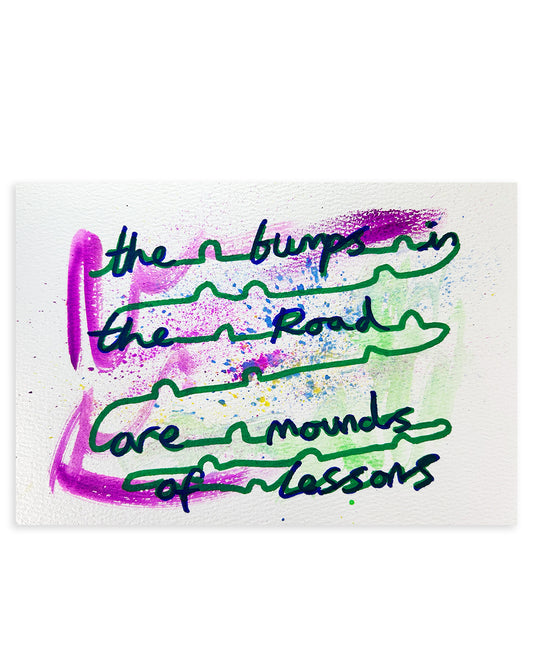 the bumps in
the Road
are mounds
of Lessons